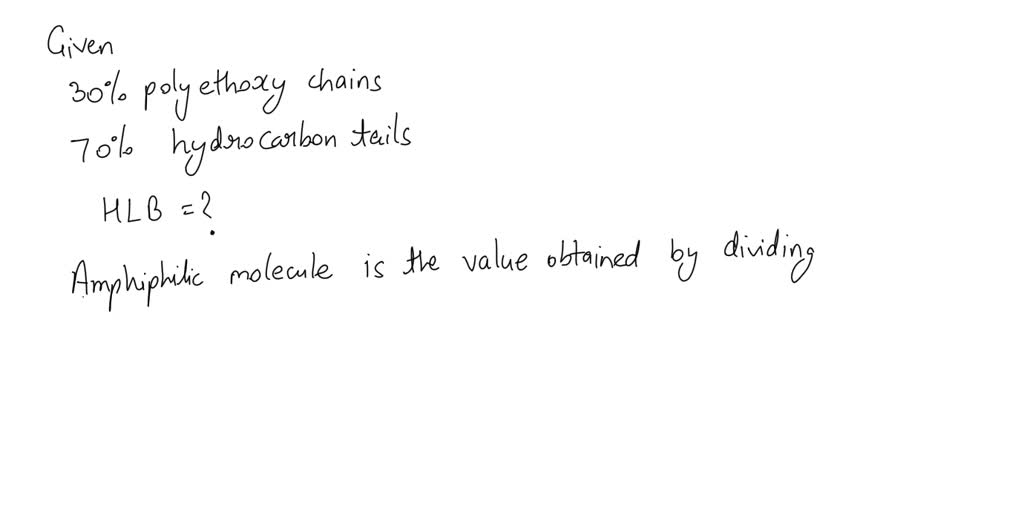 Given
30% polyethoxy chains
70% hydrocarbon tails
HLB = ?
Amphiphilic molecule is the value obtained by dividing